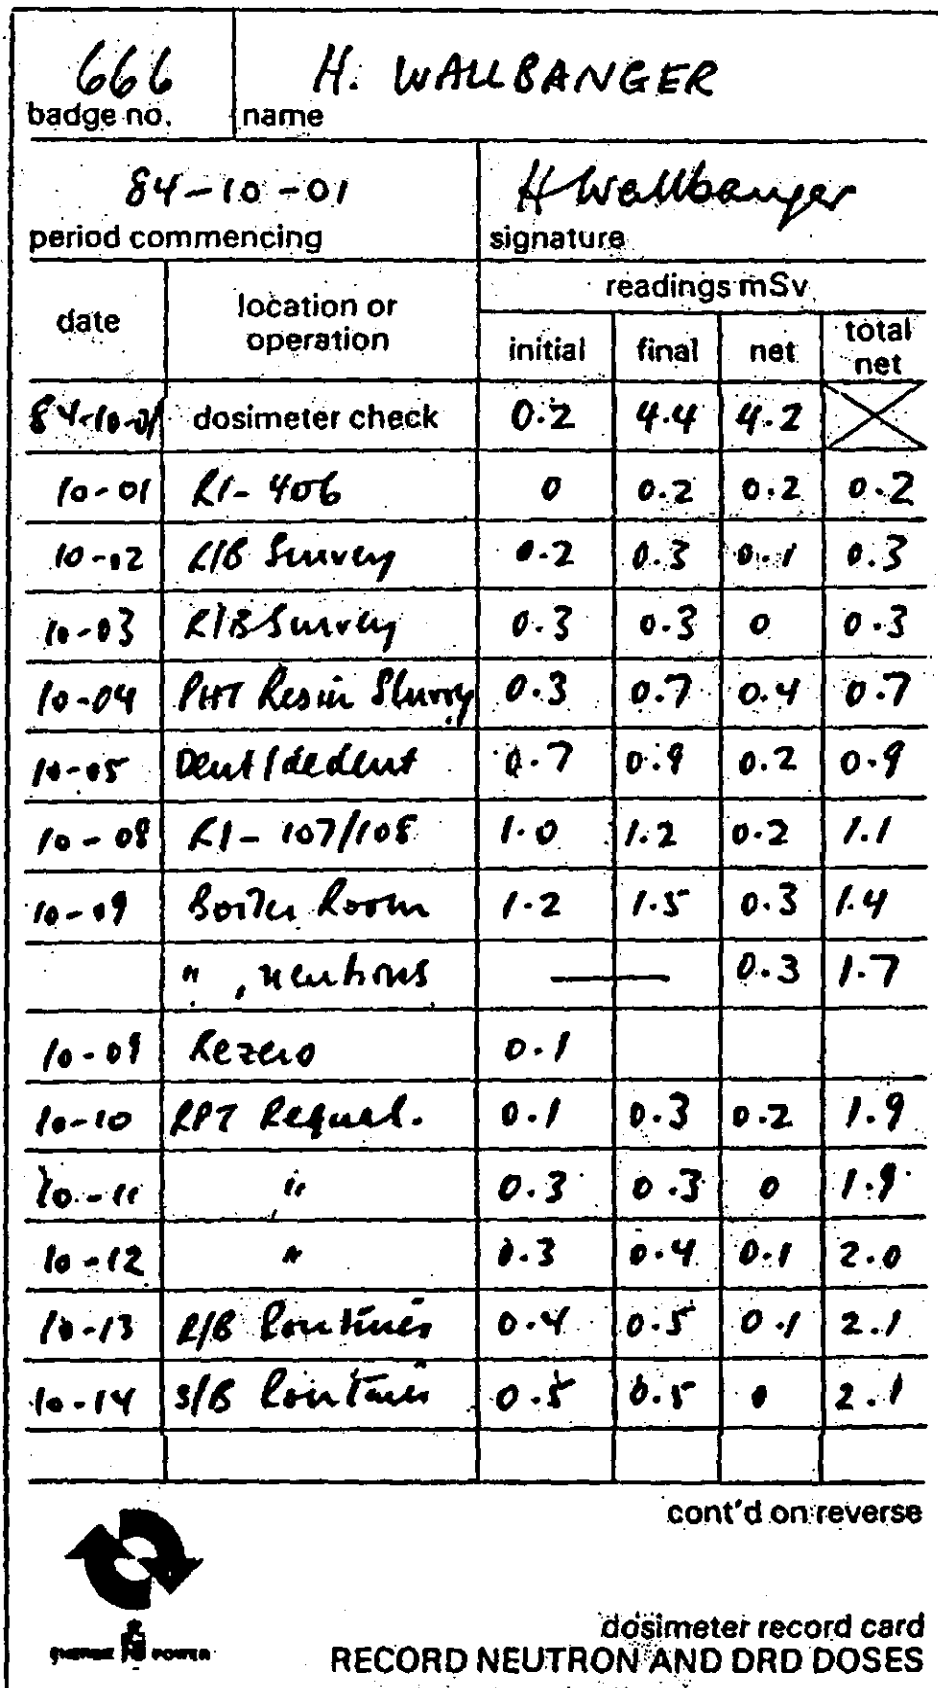 666 H. WALLBANGER
badge no. name
84-10-01 H Wallbanger
period commencing signature
readings mSv
date location or operation initial final net total net
84-10-01 dosimeter check 0.2 4.4 4.2
10-01 R1-406 0 0.2 0.2 0.2
10-02 R/B Survey 0.2 0.3 0.1 0.3
10-03 R/B Survey 0.3 0.3 0 0.3
10-04 PHT Resin Slurry 0.3 0.7 0.4 0.7
10-05 Deut/dedeut 0.7 0.9 0.2 0.9
10-08 R1-107/108 1.0 1.2 0.2 1.1
10-09 Boiler Room 1.2 1.5 0.3 1.4
" , neutrons — 0.3 1.7
10-09 Rezero 0.1
10-10 RPT Requal. 0.1 0.3 0.2 1.9
10-11 " 0.3 0.3 0 1.9
10-12 " 0.3 0.4 0.1 2.0
10-13 R/B Routines 0.4 0.5 0.1 2.1
10-14 S/B Routines 0.5 0.5 0 2.1
cont'd on reverse
POWER
dosimeter record card
RECORD NEUTRON AND DRD DOSES